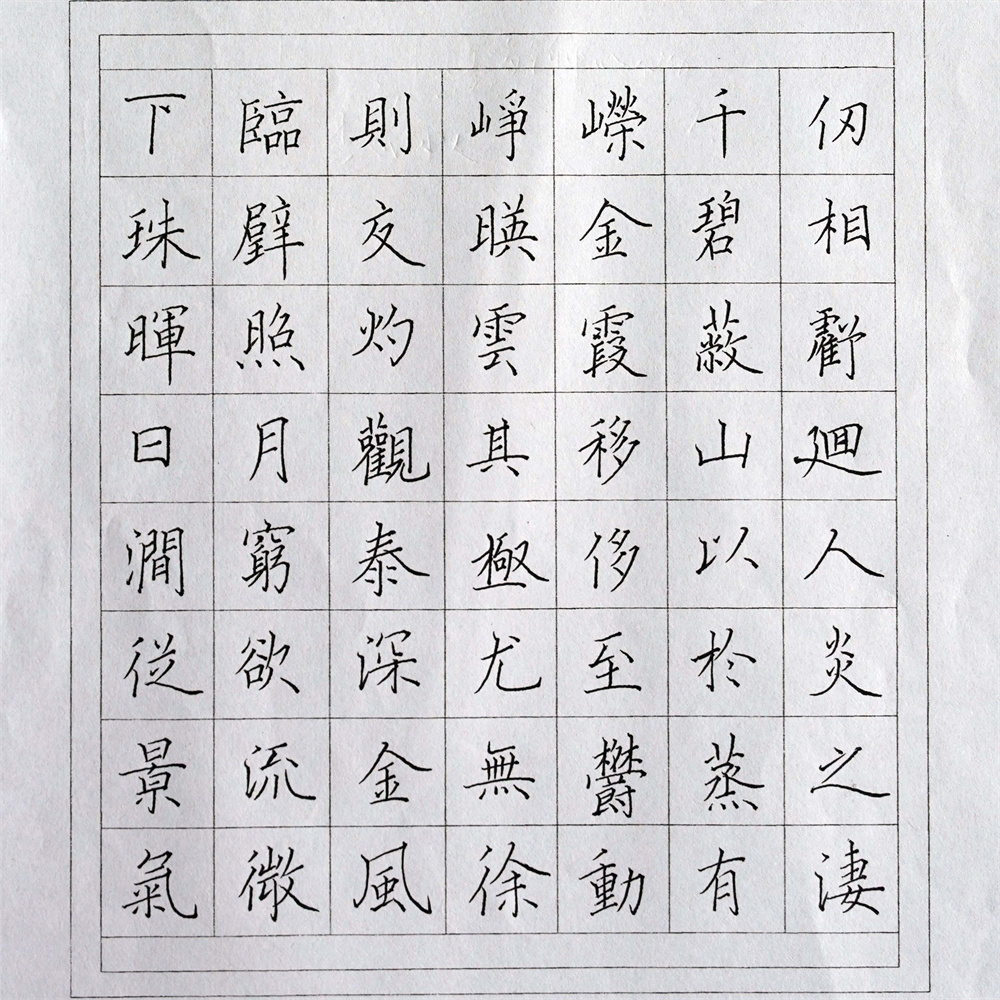 下臨則崢嶸千仞
珠壁交暎金碧相
暉照灼雲霞蔽虧
日月觀其移山廻
澗窮泰極侈以人
従欲深尤至於炎
景流金無鬱蒸之
氣微風徐動有淒